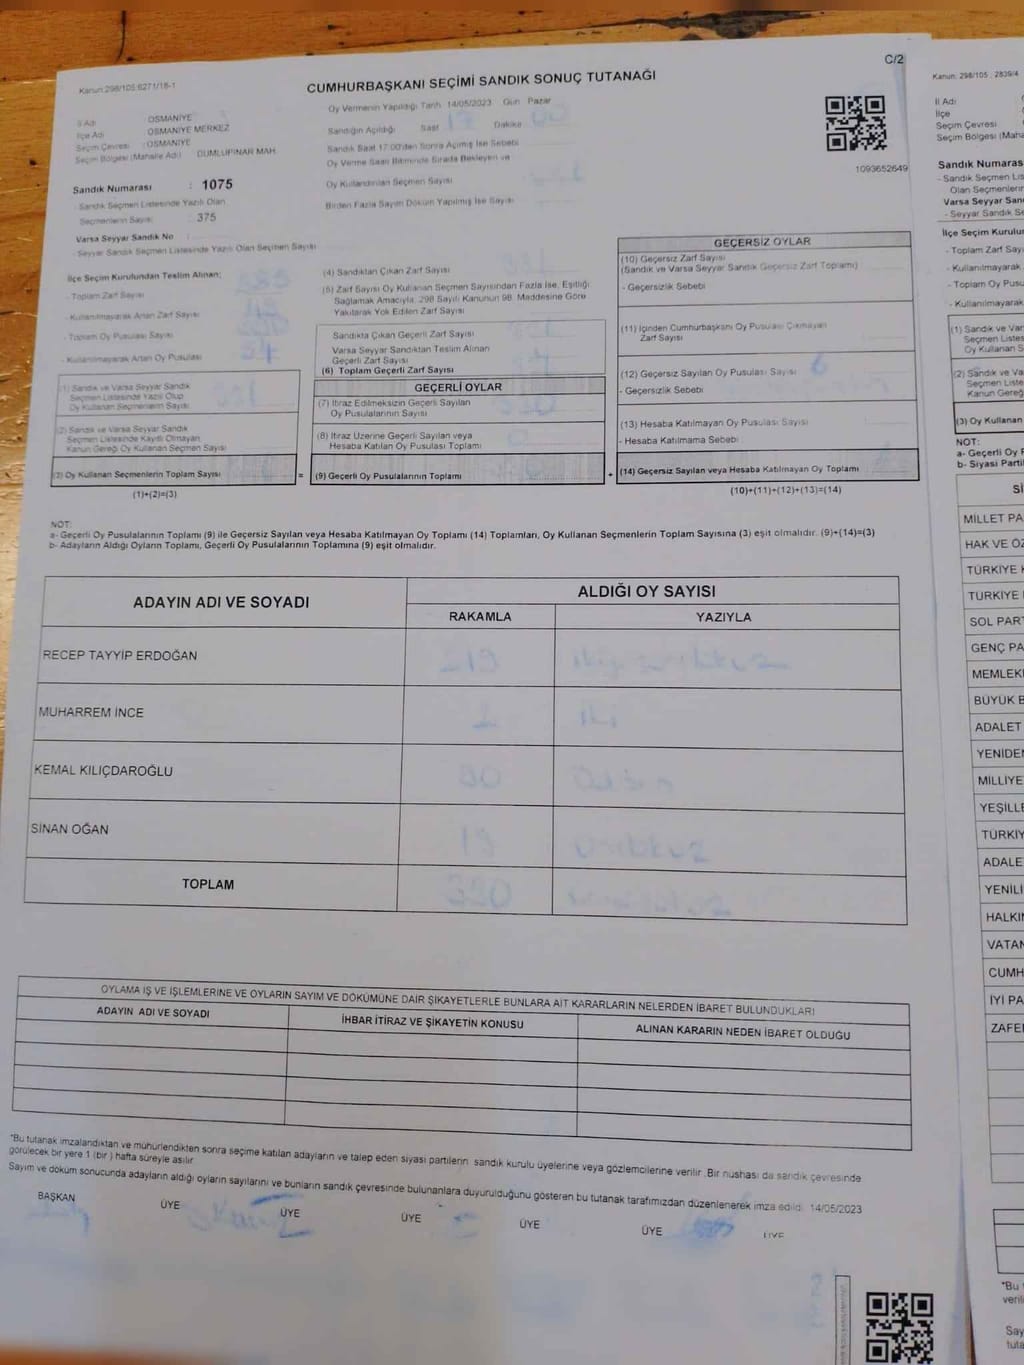 C/2
Kanun:298/105.6271/18-1
CUMHURBAŞKANI SEÇİMİ SANDIK SONUÇ TUTANAĞI
Oy Vermenin Yapıldığı Tarih 14/05/2023 Gün Pazar
Sandığın Açıldığı Saat 17 Dakika 00
Sandık Saat 17:00'den Sonra Açımış İse Sebebi
Oy Verme Saati Bitiminde Sırada Bekleyen ve
Oy Kullandırılan Seçmen Sayısı
Birden Fazla Sayım Döküm Yapılmış İse Sayısı
İl Adı : OSMANİYE
İlçe Adı OSMANİYE MERKEZ
Seçim Çevresi : OSMANİYE
Seçim Bölgesi (Mahalle Adı) DUMLUPINAR MAH.
1093652649
Sandık Numarası : 1075
- Sandık Seçmen Listesinde Yazılı Olan
Seçmenlerin Sayısı : 375
Varsa Seyyar Sandık No
- Seyyar Sandık Seçmen Listesinde Yazılı Olan Seçmen Sayısı
İlçe Seçim Kurulundan Teslim Alınan:
- Toplam Zarf Sayısı
- Kullanılmayarak Artan Zarf Sayısı
- Toplam Oy Pusulası Sayısı
- Kullanılmayarak Artan Oy Pusulası
(1) Sandık ve Varsa Seyyar Sandık
Seçmen Listesinde Yazılı Olup
Oy Kullanan Seçmenlerin Sayısı
(2) Sandık ve Varsa Seyyar Sandık
Seçmen Listesinde Kayıtlı Olmayan
Kanun Gereği Oy Kullanan Seçmen Sayısı
(3) Oy Kullanan Seçmenlerin Toplam Sayısı
(1)+(2)=(3)
(4) Sandıktan Çıkan Zarf Sayısı
(5) Zarf Sayısı Oy Kullanan Seçmen Sayısından Fazla İse, Eşitliği
Sağlamak Amacıyla, 298 Sayılı Kanunun 98. Maddesine Göre
Yakılarak Yok Edilen Zarf Sayısı
Sandıkta Çıkan Geçerli Zarf Sayısı
Varsa Seyyar Sandıktan Teslim Alınan
Geçerli Zarf Sayısı
(6) Toplam Geçerli Zarf Sayısı
GEÇERLİ OYLAR
(7) İtiraz Edilmeksizin Geçerli Sayılan
Oy Pusulalarının Sayısı
(8) İtiraz Üzerine Geçerli Sayılan veya
Hesaba Katılan Oy Pusulası Toplamı 0
= (9) Geçerli Oy Pusulalarının Toplamı +
GEÇERSİZ OYLAR
(10) Geçersiz Zarf Sayısı
(Sandık ve Varsa Seyyar Sandık Geçersiz Zarf Toplamı)
- Geçersizlik Sebebi
(11) İçinden Cumhurbaşkanı Oy Pusulası Çıkmayan
Zarf Sayısı
(12) Geçersiz Sayılan Oy Pusulası Sayısı 6
- Geçersizlik Sebebi
(13) Hesaba Katılmayan Oy Pusulası Sayısı
- Hesaba Katılmama Sebebi
(14) Geçersiz Sayılan veya Hesaba Katılmayan Oy Toplamı
(10)+(11)+(12)+(13)=(14)
NOT:
a- Geçerli Oy Pusulalarının Toplamı (9) ile Geçersiz Sayılan veya Hesaba Katılmayan Oy Toplamı (14) Toplamları, Oy Kullanan Seçmenlerin Toplam Sayısına (3) eşit olmalıdır. (9)+(14)=(3)
b- Adayların Aldığı Oyların Toplamı, Geçerli Oy Pusulalarının Toplamına (9) eşit olmalıdır.
ADAYIN ADI VE SOYADI
ALDIĞI OY SAYISI
RAKAMLA YAZIYLA
RECEP TAYYİP ERDOĞAN 219
MUHARREM İNCE 2 iki
KEMAL KILIÇDAROĞLU 80
SİNAN OĞAN 19 ondokuz
TOPLAM 320
OYLAMA İŞ VE İŞLEMLERİNE VE OYLARIN SAYIM VE DÖKÜMÜNE DAİR ŞİKAYETLERLE BUNLARA AİT KARARLARIN NELERDEN İBARET BULUNDUKLARI
ADAYIN ADI VE SOYADI İHBAR İTİRAZ VE ŞİKAYETİN KONUSU ALINAN KARARIN NEDEN İBARET OLDUĞU
*Bu tutanak imzalandıktan ve mühürlendikten sonra seçime katılan adayların ve talep eden siyasi partilerin sandık kurulu üyelerine veya gözlemcilerine verilir. Bir nüshası da sandık çevresinde
görülecek bir yere 1 (bir) hafta süreyle asılır.
Sayım ve döküm sonucunda adayların aldığı oyların sayılarını ve bunların sandık çevresinde bulunanlara duyurulduğunu gösteren bu tutanak tarafımızdan düzenlenerek imza edildi. 14/05/2023
BAŞKAN ÜYE ÜYE ÜYE ÜYE ÜYE ÜYE
Kanun: 298/105 , 2839/4
İl Adı
İlçe
Seçim Çevresi
Seçim Bölgesi (Maha
Sandık Numaras
- Sandık Seçmen Lis
Olan Seçmenlerin
Varsa Seyyar San
- Seyyar Sandık Se
İlçe Seçim Kurulur
- Toplam Zarf Sayı
- Kullanılmayarak
- Toplam Oy Pusu
- Kullanılmayarak
(1) Sandık ve Var
Seçmen Listes
Oy Kullanan S
(2) Sandık ve Va
Seçmen Listes
Kanun Gereğ
(3) Oy Kullanan
NOT:
a- Geçerli Oy F
b- Siyasi Parti
Sİ
MİLLET PA
HAK VE ÖZ
TÜRKİYE K
TÜRKİYE
SOL PART
GENÇ PA
MEMLEK
BÜYÜK B
ADALET
YENİDEN
MİLLİYE
YEŞİLLE
TÜRKİY
ADALE
YENİLİ
HALKIN
VATAN
CUMH
İYİ PA
ZAFE
*Bu
veril
Say
tuta